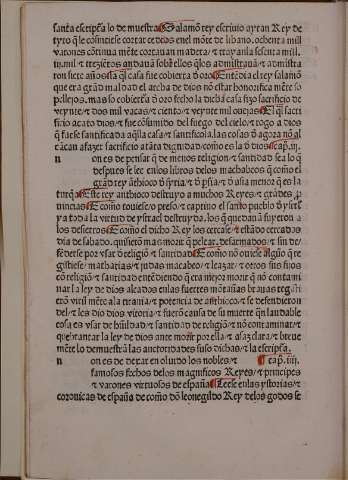 santa escriptura lo demuestra Salamõ rey escriuio ayran Rey de
tyro q̃ le consintiese cortar cedros enel mõte de libano. ochenta mill
varones cõtinua mẽte cortauan madera/ ⁊ trayanla setenta mill.
⁊ trezientos andauã sobre ellos q̃los admistrauã/
ron siete años q̃l casa fue cobierta de oro Entẽdia el rey salamõ
que era grã maldad el archa de dios nõ estar honorifica mẽte so
pellejos. mas so cobierta de oro fecho la dicha casa fizo sacrificio de
veynte/ ⁊ dos mill vacas/ ⁊ ciento/ ⁊ veynte mil ouejas El q̃l sacri
ficio acato dios/ ⁊ fue cõsumido del fuego del cielo/ ⁊ rogo a dios
q̃ fuese santificada aq̃lla casa/ ⁊ santificola. las cosas de agora nõ al
cãçan a fazer sacrificio a tãta dignidad/ como es la de dios cap. iij.
n on es de pensar q̃ de menos religion/ ⁊ santidad sea lo q̃
despues se lee enlos libros delos machabeos q̃ como el
grãd rey ãthioco de syria/ ⁊ de psia/ ⁊ de asia menor que es la
turq̃a Este rey anthioco destruyo a muchos Reyes/ ⁊ grãdes p
uincias E como touiese/ o preso/ ⁊ captiuo el santo pueblo de ysrl
⁊ a toda la virtud de ysrael destruyda. los q̃ quedauã fuyeron a
los desiertos E como el dicho Rey los cercase/ ⁊ estãdo cercados
dia de sabado. quisierõ mas morir que pelear. desarmados/ ⁊ sin de/
fẽderse por vsar de religiõ/ ⁊ santidad E como nõ ouiese alguno que re
gistiese/ mathatias/ ⁊ judas macabeo/ ⁊ leazar/ ⁊ otros sus fijos
cõ religiõ/ ⁊ santidad entẽdiendo q̃ era mijor morir q̃ nõ contami
nar la ley de dios alçados enlas fuertes mõtañas brauas
erõ viril mẽte ala tirania/ ⁊ potencia de anthioco/ ⁊ se defendieron
del/ ⁊ les dio dios vitoria/ ⁊ fuerõ causa de su muerte que laudable
cosa es vsar de humildad/ ⁊ santidad de religiõ/ ⁊ nõ contaminar/ ⁊
quebrantar la ley de dios ante morir por ella/ ⁊ asaz clara/ ⁊ breue
mẽte lo demuestrã las auctoridades suso dichas/ ⁊ la escriptura.
n on es de dexar en oluido los nobles/ ⁊ cap. iiij.
famosos fechos delos magnificos Reyes/ ⁊ principes
⁊ varones virtuosos de españa Leese enlas ystorias/ ⁊
coronicas de españa de como dõ leonegildo Rey delos godos se